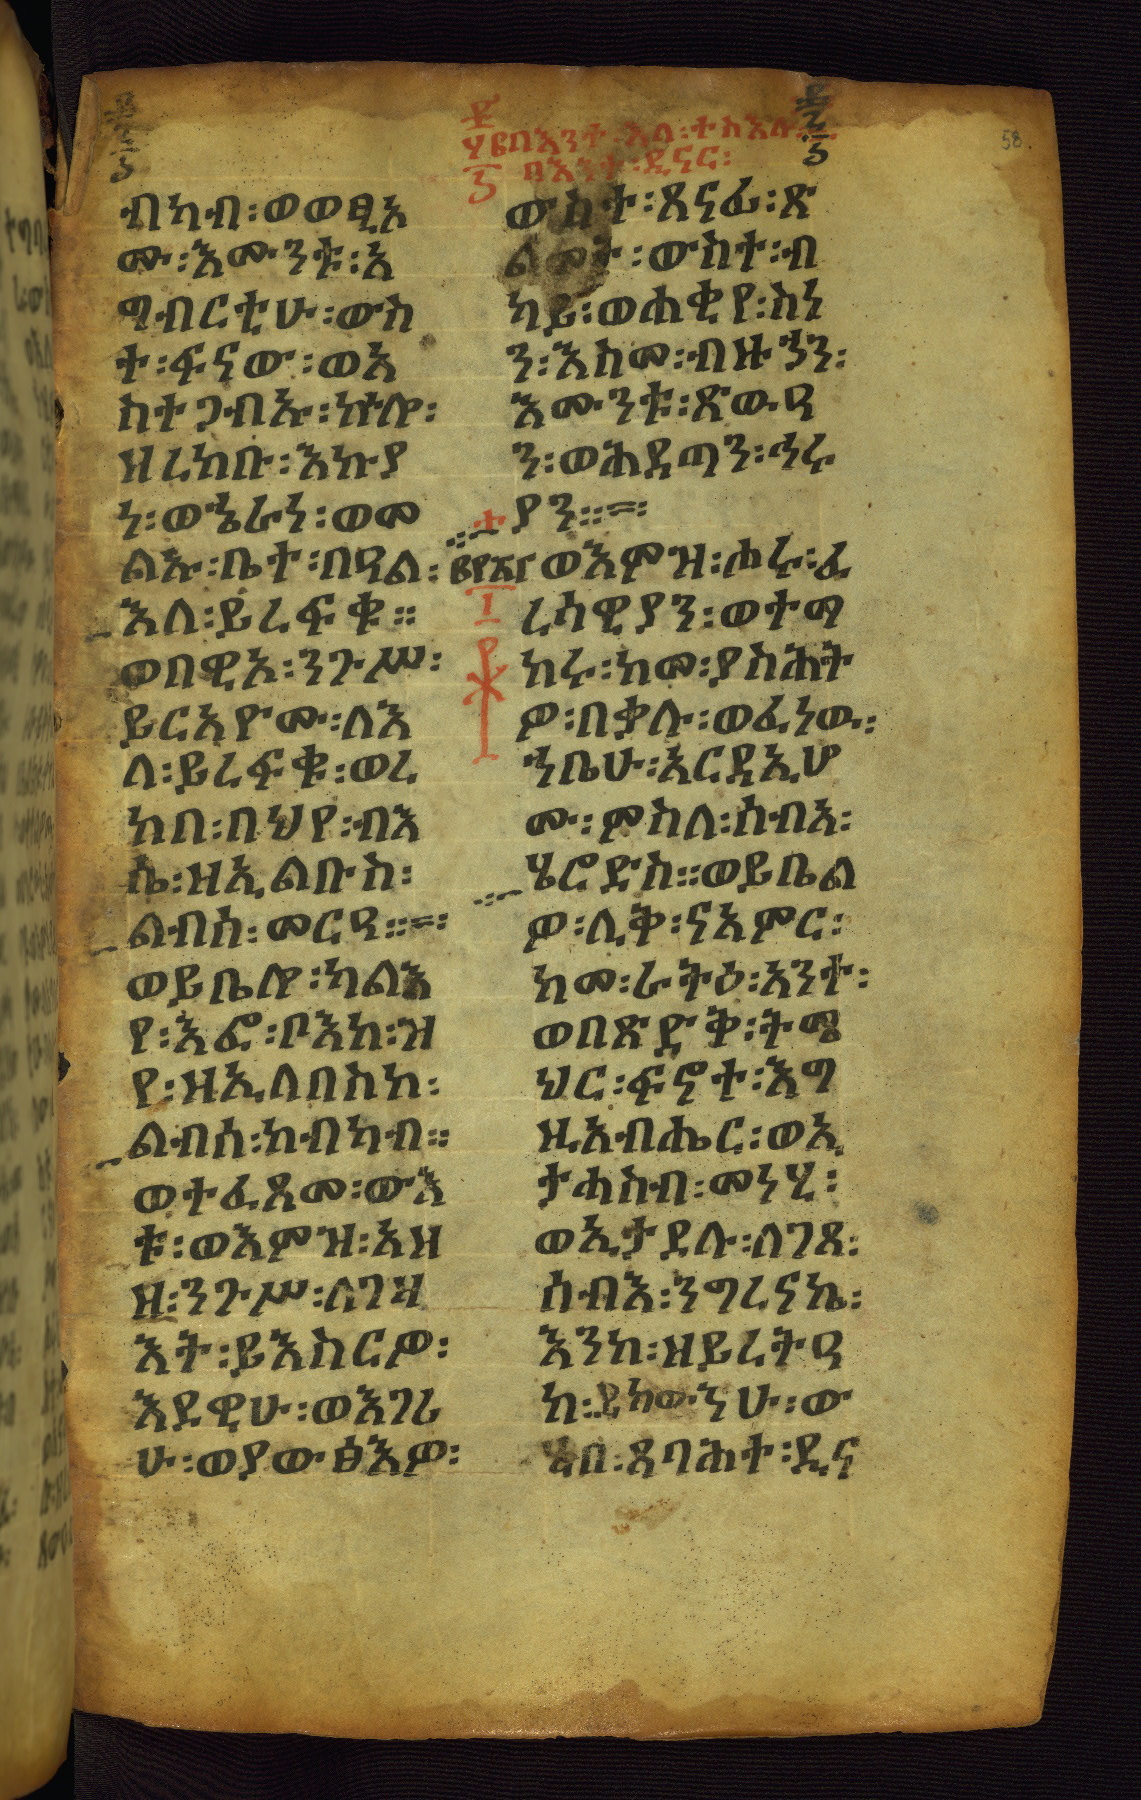 ፳፪በእንተ፡እለ፡ተስእሉ፡
በእንተ፡ዲናር፡
ብካብ፡ወወፂኦ
ሙ፡እሙንቱ፡አ
ግብርቲሁ፡ውስ
ተ፡ፍናው፡ወአ
ስተጋብኡ፡ኵሎ፡
ዘረከቡ፡እኩያ
ነ፡ወኄራነ፡ወመ
ልኡ፡ቤተ፡በዓል፡
እለ፡ይረፍቁ።
ወበዊኦ፡ንጉሥ፡
ይርአዮሙ፡ለእ
ለ፡ይረፍቁ፡ወረ
ከበ፡በህየ፡ብእ
ሴ፡ዘኢልቡስ፡
ልብሰ፡መርዓ።
ወይቤሎ፡ካልእ
የ፡እፎ፡ቦእከ፡ዝ
የ፡ዘኢለበስከ፡
ልብሰ፡ከብካብ።
ወተፈጸመ፡ውእ
ቱ፡ወእምዝ፡አዘ
ዘ፡ንጉሥ፡ለገዛ
እት፡ይእስርዎ፡
እደዊሁ፡ወእገሪ
ሁ፡ወያውፅእዎ፡
ውስተ፡ጸናፊ፡ጽ
ልመት፡ውስተ፡ብ
ካይ፡ወሐቂየ፡ስነ
ን፡እስመ፡ብዙኃን፡
እሙንቱ፡ጽውዓ
ን፡ወሕዳጣን፡ኅሩ
ያን።
ወእምዝ፡ሐሩ፡ፈ
ሪሳዊያን፡ወተማ
ከሩ፡ከመ፡ያስሕት
ዎ፡በቃሉ፡ወፈነው፡
ኀቤሁ፡አርዳኢሆ
ሙ፡ምስለ፡ሰብአ፡
ሄሮድስ።ወይቤል
ዎ፡ሊቅ፡ናአምር፡
ከመ፡ራትዕ፡አንተ፡
ወበጽድቅ፡ትሜ
ህር፡ፍኖተ፡እግ
ዚአብሔር፡ወኢ
ታሓስብ፡መነሂ፡
ወኢታደሉ፡ለገጸ፡
ሰብእ፡ንግረናኬ፡
እንከ፡ዘይረትዓ
ከ፡ይከውንሁ፡ው
ሂበ፡ጸባሕተ፡ዲና